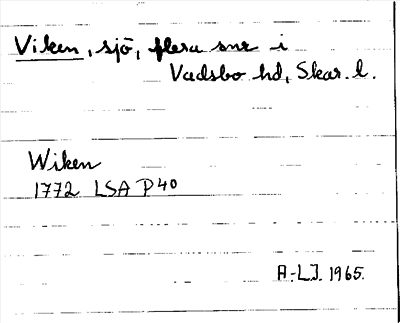 Viken, sjö, flera snr i
Vadsbo hd, Skar. l.
Wiken
1772 LSA P40
A-L J. 1965.